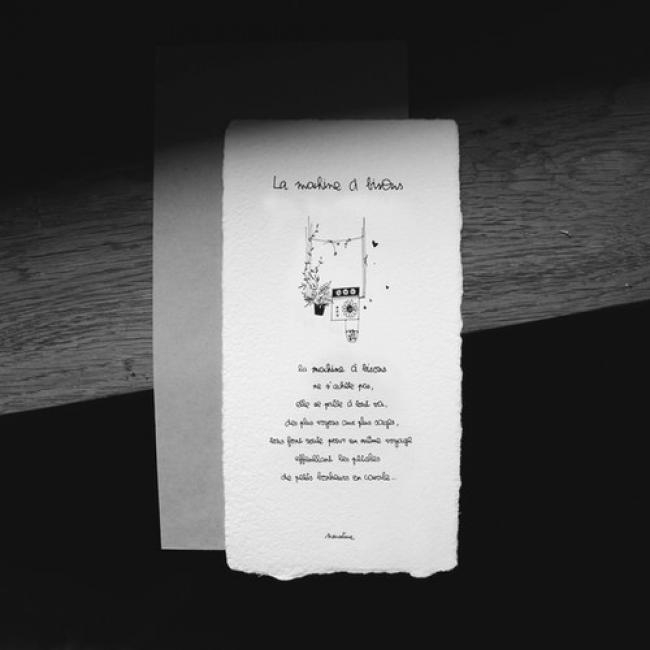 La machine à bisous
la machine à bisous
ne s'achète pas,
elle se prête à tout va,
des plus voyous aux plus sages,
tous font route pour un même voyage
effeuillant les pétales
de petits bonheurs en cavale...